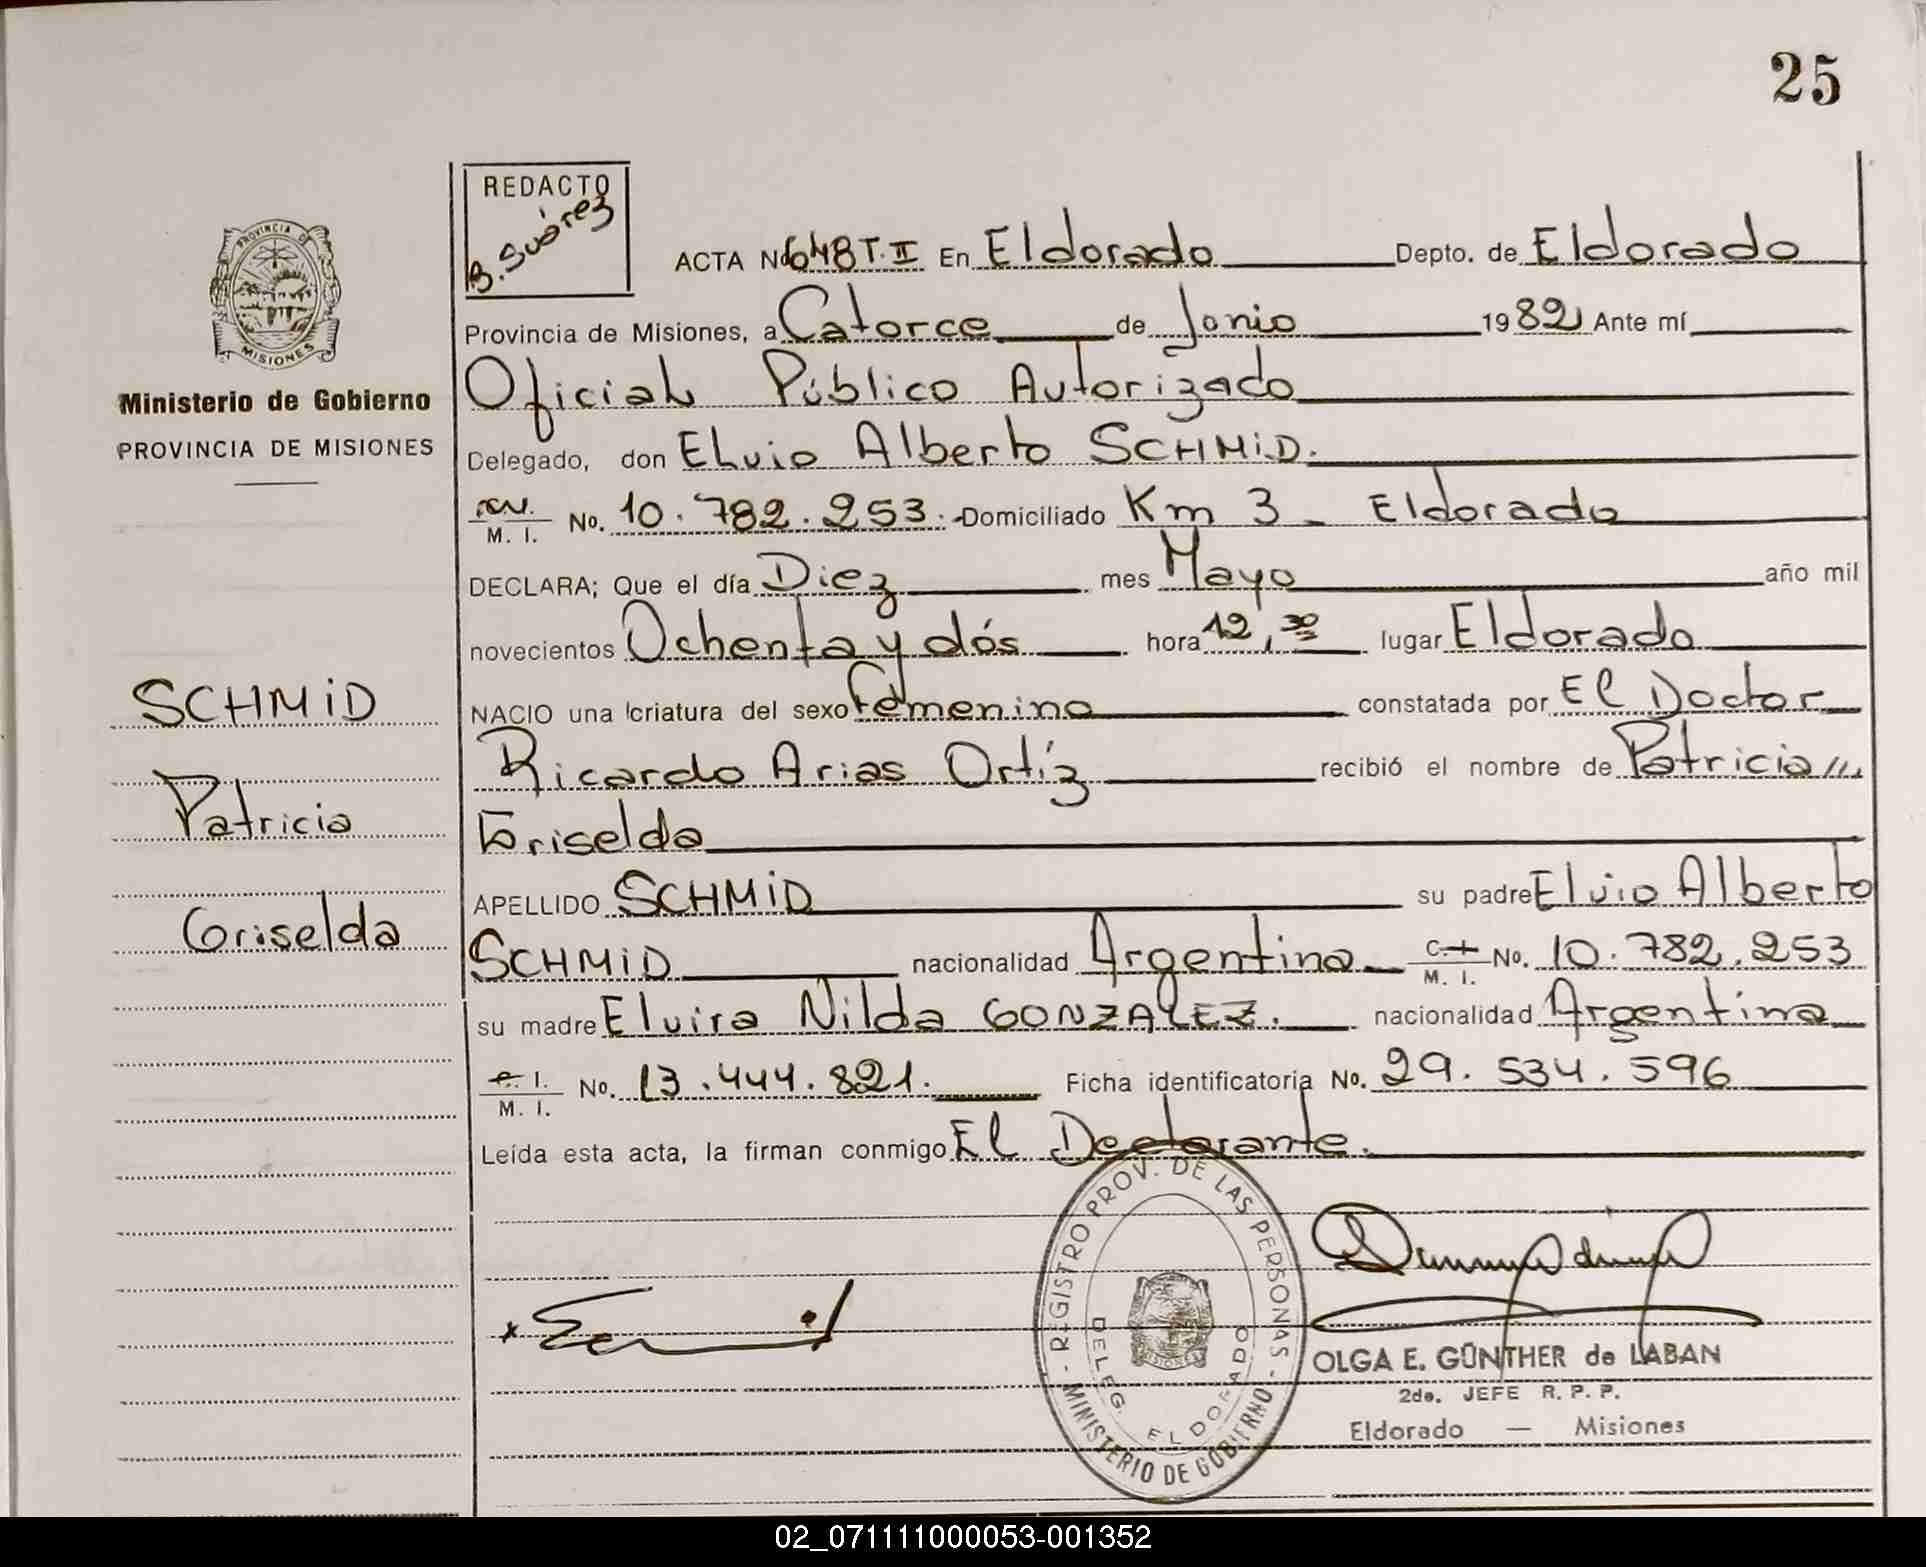 25
REDACTO
B. Suárez
PROVINCIA DE
MISIONES
Ministerio de Gobierno
PROVINCIA DE MISIONES
SCHMiD
Patricia
Griselda
ACTA No 648 T. II En Eldorado Depto. de Eldorado
Provincia de Misiones, a Catorce de Junio 1982 Ante mí
Oficial Público Autorizado
Delegado, don Elvio Alberto SCHMiD.
M. I. No. 10.782.253.- Domiciliado Km 3 - Eldorado
DECLARA; Que el día Diez mes Mayo año mil
novecientos Ochenta y dós hora 12,30 lugar Eldorado
NACIO una criatura del sexo Femenino constatada por El Doctor
Ricardo Arias Ortíz recibió el nombre de Patricia ///
Griselda
APELLIDO SCHMiD su padre Elvio Alberto
SCHMiD nacionalidad Argentina M. I. No. 10.782.253
su madre Elvira Nilda GONZALEZ. nacionalidad Argentina
M. I. No. 13.444.821. Ficha identificatoria No. 29.534.596
Leída esta acta, la firman conmigo El Declarante.
REGISTRO PROV. DE LAS PERSONAS - MINISTERIO DE GOBIERNO -
DELEG. ELDORADO
OLGA E. GÜNTHER de LABAN
2da. JEFE R. P. P.
Eldorado — Misiones
02_071111000053-001352